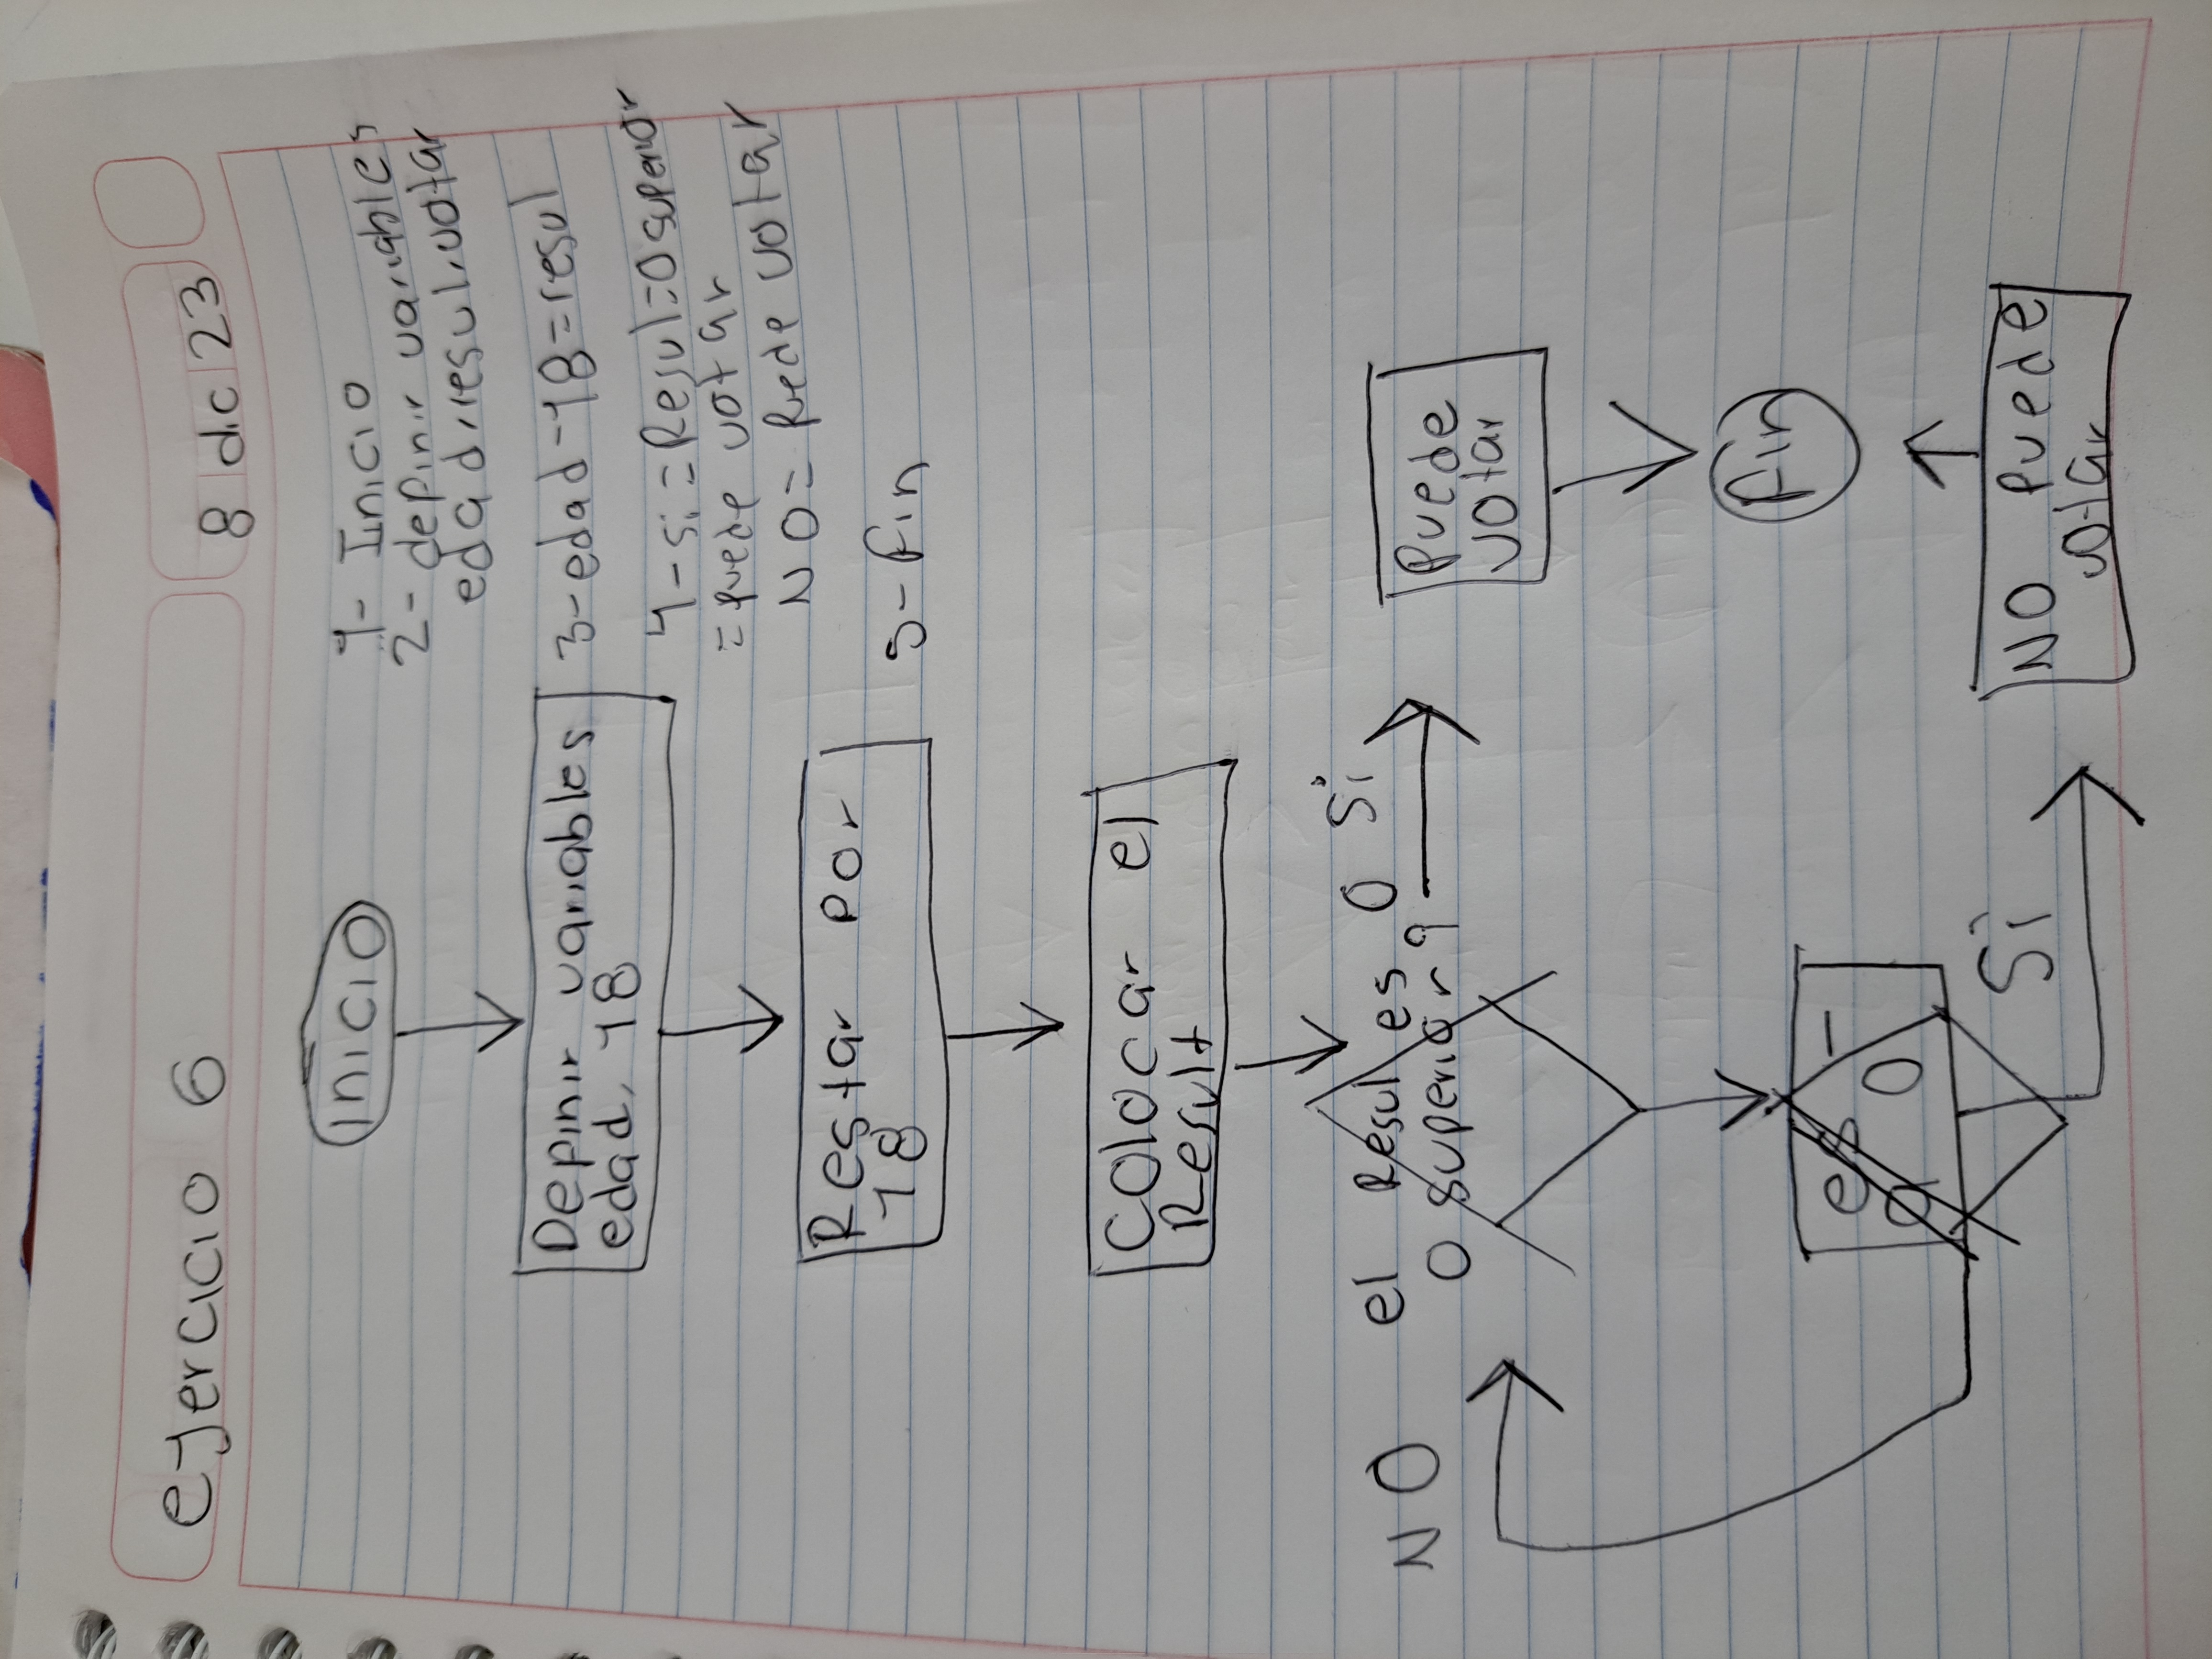 ejercicio 6
8 dic 23
1- Inicio
2- definir variables
edad, resul, votar
3- edad -18 = resul
4- si = Resul = 0 superior
= puede votar
NO = puede votar
5- fin
inicio
Definir variables
edad, 18
Restar por
18
Colocar el
Result
el Resul es 0
O superior
Si
Puede
votar
fin
NO
es -
a 0
Si
NO Puede
votar